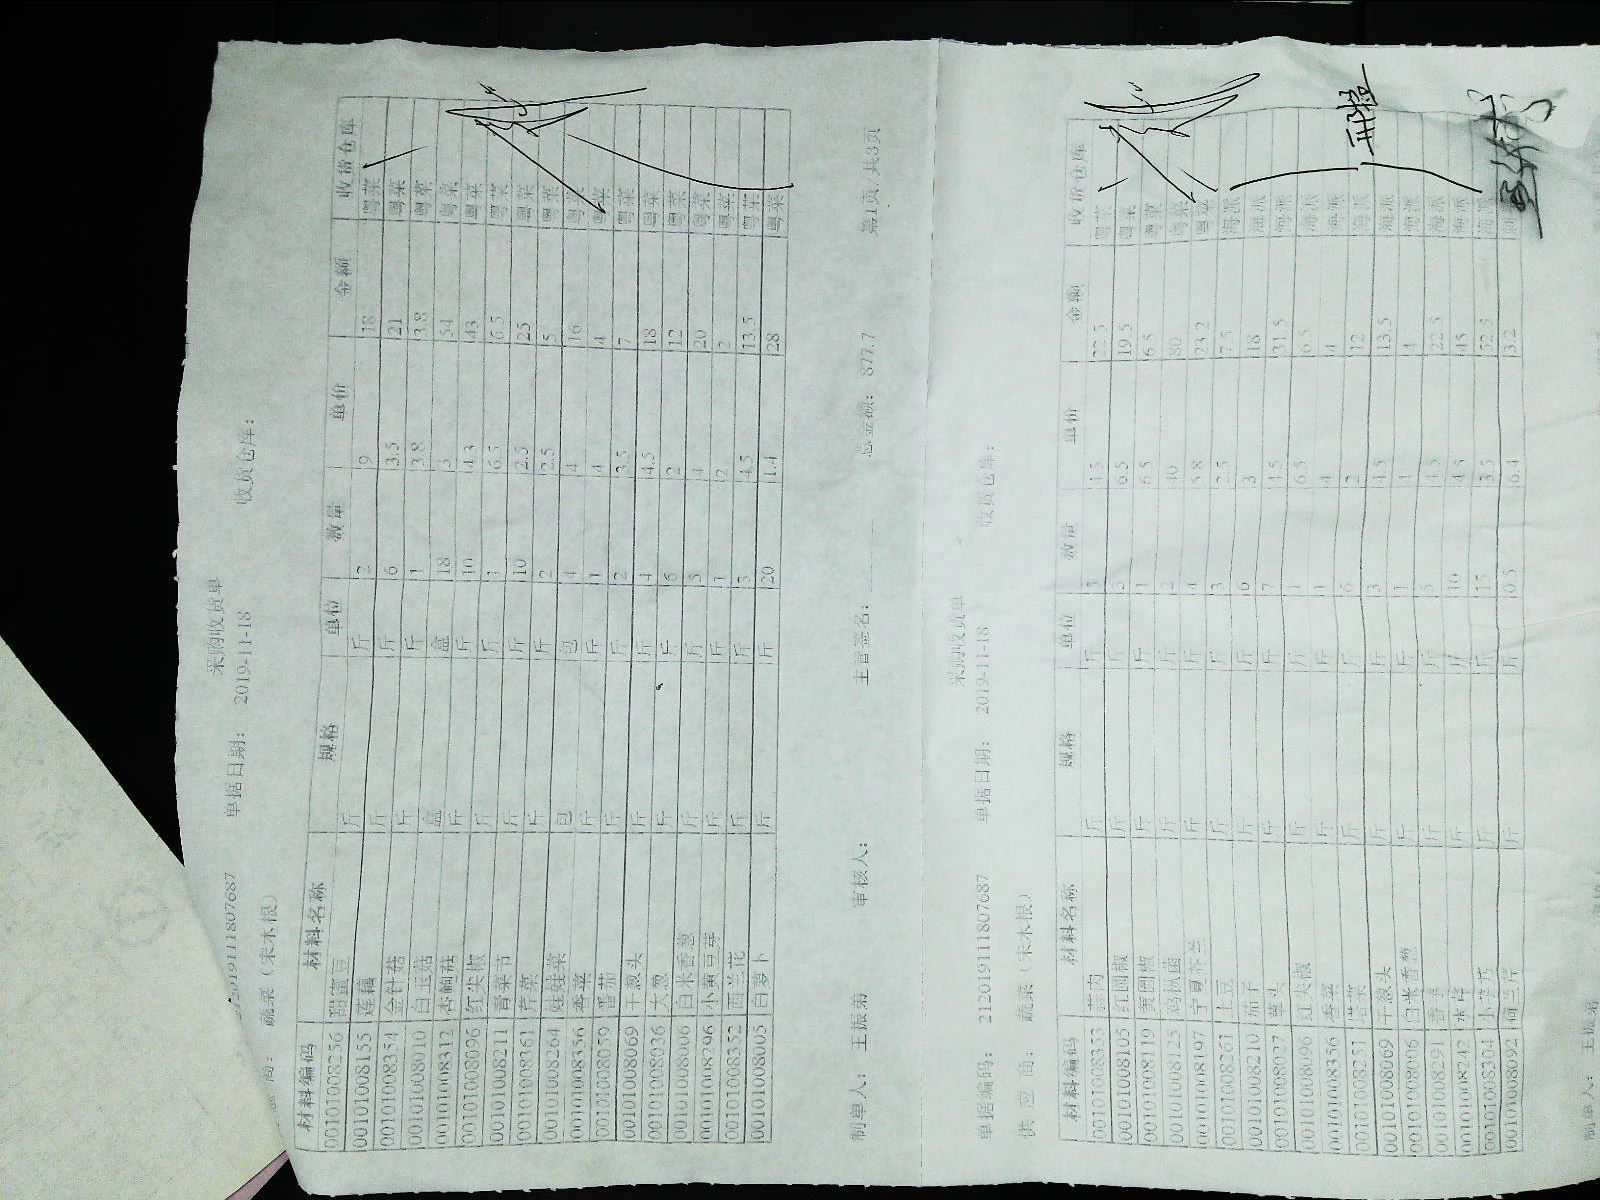 采购收货单
212019111807687 单据日期: 2019-11-18 收货仓库:
商: 蔬菜（宋木根）
材料编码 材料名称 规格 单位 数量 单价 金额 收货仓库
00101008236 甜蜜豆 斤 斤 2 9 18 粤菜
00101008155 莲藕 斤 斤 6 3.5 21 粤菜
00101008354 金针菇 斤 斤 1 3.8 3.8 粤菜
00101008010 白玉菇 盒 盒 18 3 54 粤菜
00101008312 杏鲍菇 斤 斤 10 4.3 43 粤菜
00101008096 红尖椒 斤 斤 1 6.5 6.5 粤菜
00101008211 青菜节 斤 斤 10 2.5 25 粤菜
00101008361 芹菜 斤 斤 2 2.5 5 粤菜
00101008264 娃娃菜 包 包 4 4 16 粤菜
00101008356 香菜 斤 斤 1 4 4 粤菜
00101008059 番茄 斤 斤 2 3.5 7 粤菜
00101008069 干葱头 斤 斤 4 4.5 18 粤菜
00101008036 大葱 斤 斤 6 2 12 粤菜
00101008006 白米香葱 斤 斤 5 4 20 粤菜
00101008296 小黄豆芽 斤 斤 1 2 2 粤菜
00101008352 西兰花 斤 斤 3 4.5 13.5 粤菜
00101008005 白萝卜 斤 斤 20 1.4 28 粤菜
制单人: 王振弟 审核人: 主管签名: 总金额: 877.7 第1页,共3页
采购收货单
单据编码: 212019111807687 单据日期: 2019-11-18 收货仓库:
供 应 商: 蔬菜（宋木根）
材料编码 材料名称 规格 单位 数量 单价 金额 收货仓库
00101008333 蒜肉 斤 斤 5 4.5 22.5 粤菜
00101008105 红圆椒 斤 斤 3 6.5 19.5 粤菜
00101008119 黄圆椒 斤 斤 1 6.5 6.5 粤菜
00101008125 鸡枞菌 斤 斤 2 40 80 粤菜
00101008197 宁夏芥兰 斤 斤 4 5.8 23.2 粤菜
00101008261 土豆 斤 斤 3 2.5 7.5 海派
00101008210 茄子 斤 斤 6 3 18 海派
00101008037 草头 斤 斤 7 4.5 31.5 海派
00101008096 红尖椒 斤 斤 1 6.5 6.5 海派
00101008356 香菜 斤 斤 1 4 4 海派
00101008251 塔菜 斤 斤 6 2 12 海派
00101008069 干葱头 斤 斤 3 4.5 13.5 海派
00101008006 白米香葱 斤 斤 1 4 4 海派
00101008291 香芋 斤 斤 5 4.5 22.5 海派
00101008242 斤 斤 10 4.5 45 海派
00101008304 斤 斤 15 3.5 52.5 海派
00101008092 荷兰芹 斤 斤 0.5 6.4 3.2
制单人: 王振弟